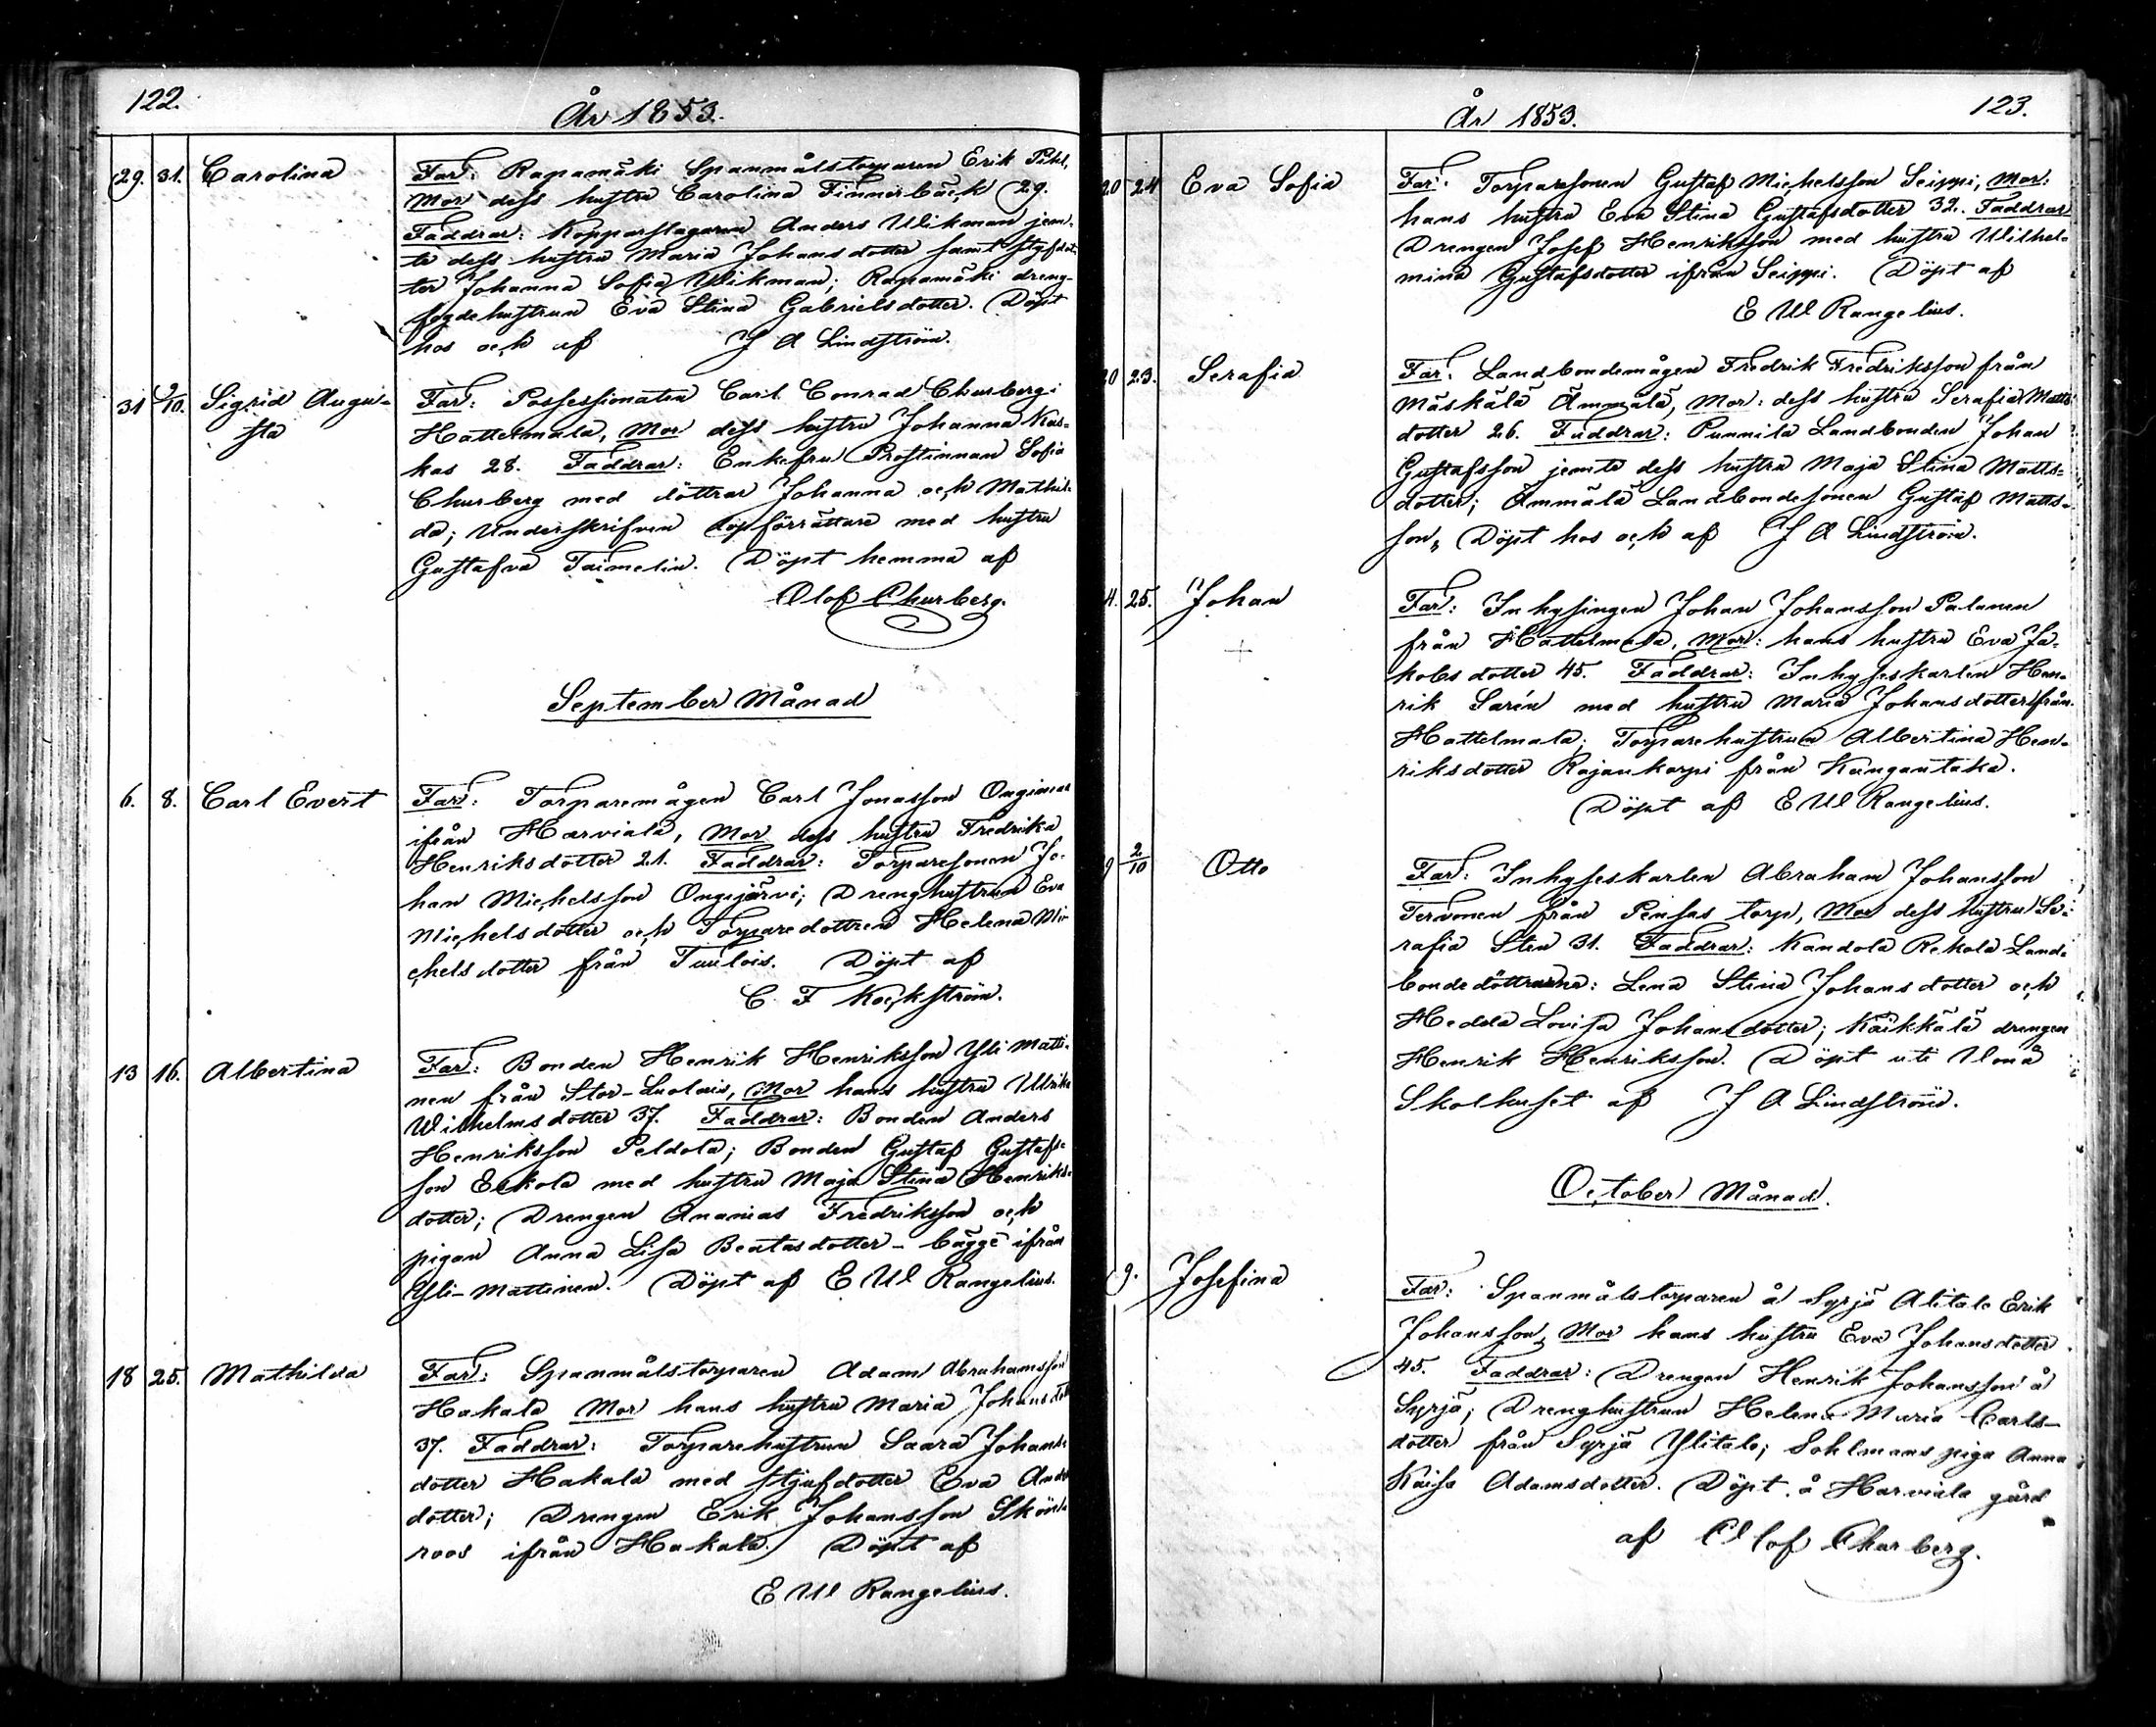 122.
År 1853.
29. 31. Carolina
Far: Rapamäki Spanmålstorparen Erik Pihl,
Mor dess hustru Carolina Finnerbäck 29.
Faddrar: Kopparslagaren Anders Wikman jem-
te dess hustru Maria Johansdotter samt styfdot-
ter Johanna Sofia Wikman; Rapamäki dreng-
fogdehustrun Eva Stina Gabrielsdotter. Döpt
hos och af J A Lindström.
31 2/10. Sigrid Augu-
sta
Far: Possessionaten Carl Conrad Churberg i
Hattelmala, Mor dess hustru Johanna Kas-
kas 28. Faddrar: Enkefru Prostinnan Sofia
Churberg med döttrar Johanna och Mathil-
da; Underskrifven dopförrättare med hustru
Gustafva Taimelin. Döpt hemma af
Olof Churberg.
September Månad
6. 8. Carl Evert
Far: Torparemågen Carl Jonasson
ifrån Harviala, Mor dess hustru Fredrika
Henriksdotter 21. Faddrar: Torparesonen Jo-
han Michelsson Ongijärvi; Drenghustrun Eva
Michelsdotter och Torparedottren Helena Mi-
chelsdotter från Tuulois. Döpt af
C. F Kockström.
13 16. Albertina
Far: Bonden Henrik Henriksson Yli Matti-
nen från Stor-Luolais, Mor hans hustru Ulrika
Wilhelmsdotter 37. Faddrar: Bonden Anders
Henriksson Peldola; Bonden Gustaf Gustafs-
son Eekola med hustru Maja Stina Henriks-
dotter; Drengen Ananias Fredriksson och
pigan Anna Lisa Beatasdotter - bägge ifrån
Yli-Mattinen. Döpt af E W Rangelius.
18 25. Mathilda
Far: Spanmålstorparen Adam Abrahamsson
Hakala Mor hans hustru Maria Johansdott
37. Faddrar: Torparehustrun Saara Johans-
dotter Hakala med styfdotter Eva
dotter; Drengen Erik Johansson
roos ifrån Hakala. Döpt af
E W Rangelius.
År 1853.
123.
20 24 Eva Sofia
Far: Torparesonen Gustaf Michelsson Seippi, Mor:
hans hustru Eva Stina Gustafsdotter 32. Faddrar
Drengen Josef Henriksson med hustru Wilhel-
mina Gustafsdotter ifrån Seippi. Döpt af
E W Rangelius.
20 23. Serafia
Far: Landbondemågen Fredrik Fredriksson från
Mäskälä Ämmälä, Mor: dess hustru Serafia Matts-
dotter 26. Faddrar: Punnila Landbonden Johan
Gustafsson jemte dess hustru Maja Stina Matts-
dotter; Ämmälä Landbondesonen Gustaf Matts-
son, Döpt hos och af J A Lindström.
25. Johan
Far: Inhysingen Johan Johansson Palanen
från Hattelmala, Mor: hans hustru Eva Ja-
kobsdotter 45. Faddrar: Inhyseskarlen Hen-
rik Sarén med hustru Maria Johansdotter från
Hattelmala; Torparehustrun Albertina Hen-
riksdotter Rajankorpi från Kangantaka.
Döpt af E W Rangelius.
2/10 Otto
Far: Inhyseskarlen Abraham Johansson
Tervonen från Pensas torp, Mor dess hustru Se-
rafia Sten 31. Faddrar: Kandola Rekola Land-
bondedöttrarna: Lena Stina Johansdotter och
Hedda Lovisa Johansdotter; Käikkälä drengen
Henrik Henriksson. Döpt uti Wonå
Skolhuset af J A Lindström.
October Månad.
9. Josefina
Far: Spanmålstorparen å Syrjä Alitalo Erik
Johansson, Mor hans hustru Eva Johansdotter
45. Faddrar: Drengen Henrik Johansson å
Syrjä; Drenghustrun Helena Maria Carls-
dotter från Syrjä Ylitalo; Sohlmans piga Anna
Kaisa Adamsdotter. Döpt å Harviala gård
af Olof Churberg.